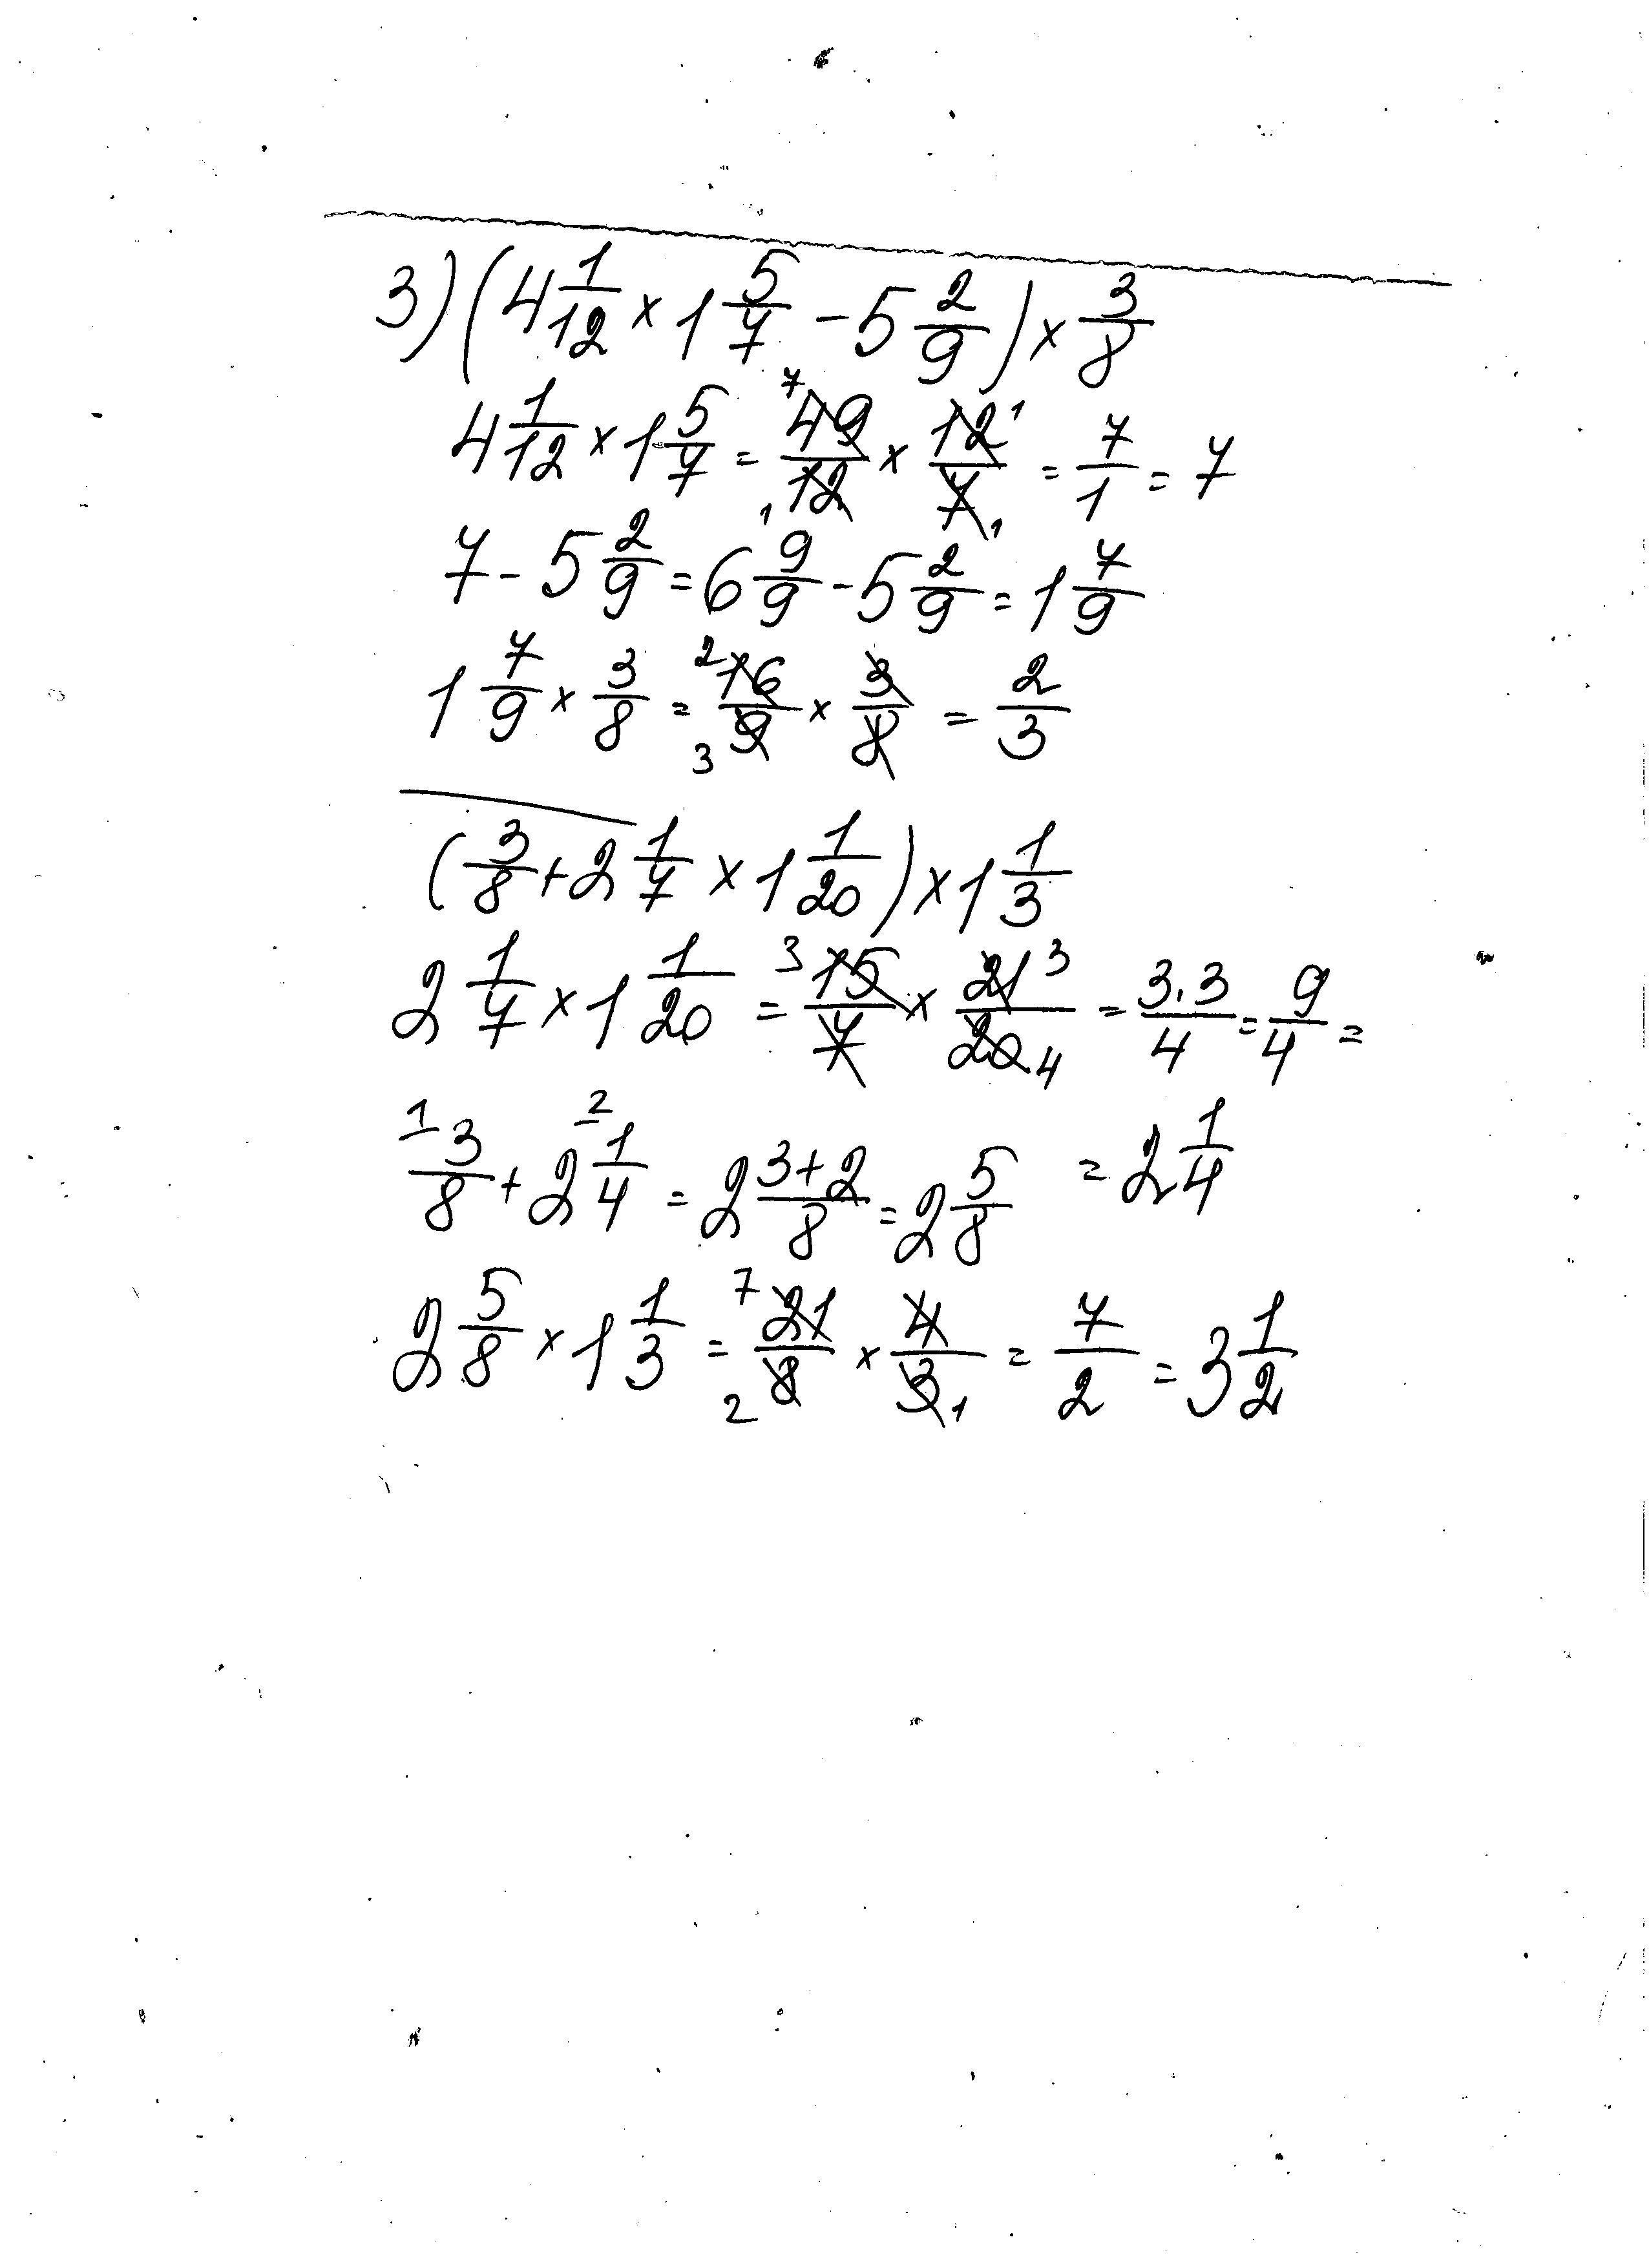 3) (4 1/12 × 1 5/7 − 5 2/9) × 3/8
4 1/12 × 1 5/7 = 7 49/12 1 × 12/7 1 1 = 7/1 = 7
7 − 5 2/9 = 6 9/9 − 5 2/9 = 1 7/9
1 7/9 × 3/8 = 2 16/9 3 × 3/8 = 2/3
(3/8 + 2 1/7 × 1 1/20) × 1 1/3
2 1/7 × 1 1/20 = 3 15/7 × 21/20 3 4 = 3.3/4 = 9/4 =
1 3/8 + 2 2 1/4 = 2 3+2/8 = 2 5/8 = 2 1/4
2 5/8 × 1 1/3 = 7 21/8 2 × 4/3 1 = 7/2 = 3 1/2